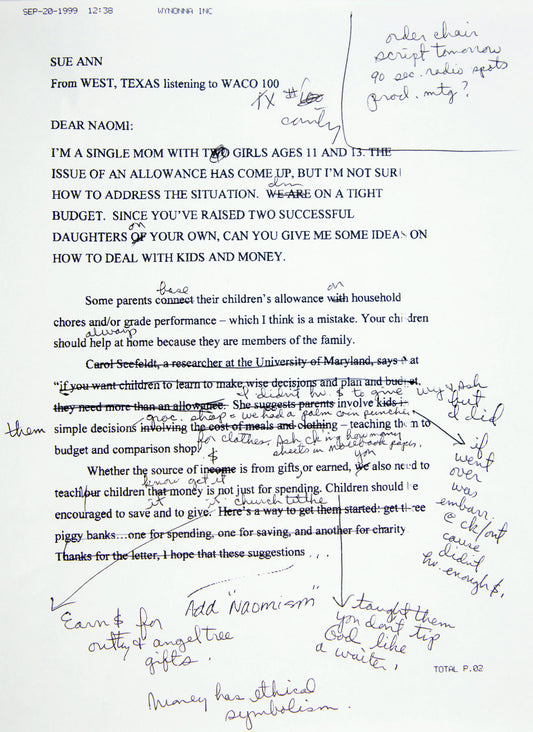 SEP-20-1999 12:38 WYNONNA INC
order chair
script tomorrow
90 sec. radio spots
prod. mtg?
SUE ANN
From WEST, TEXAS listening to WACO 100
TX #
DEAR NAOMI:
I'M A SINGLE MOM WITH TWO GIRLS AGES 11 AND 13. THE
ISSUE OF AN ALLOWANCE HAS COME UP, BUT I'M NOT SUR
HOW TO ADDRESS THE SITUATION. WE ARE ON A TIGHT
BUDGET. SINCE YOU'VE RAISED TWO SUCCESSFUL
on
DAUGHTERS OF YOUR OWN, CAN YOU GIVE ME SOME IDEAS ON
HOW TO DEAL WITH KIDS AND MONEY.
base on
Some parents connect their children's allowance with household
chores and/or grade performance – which I think is a mistake. Your children
always
should help at home because they are members of the family.
Carol Seefeldt, a researcher at the University of Maryland, says at
"if you want children to learn to make wise decisions and plan and budget,
I didn't hv. $ to give wy & Ash
they need more than an allowance. She suggests parents involve kids
but
I did
groc. shop - we had a palm coin puncher
them
simple decisions involving the cost of meals and clothing – teaching them to
for clothes. Ash ck'ing how many
budget and comparison shop.
sheets in notebook paper.
if
went
over
was
embarr.
@ ck/out
cause
didn't
hv. enough $.
$ you
Whether the source of income is from gifts or earned, we also need to
know get it
teach our children that money is not just for spending. Children should be
it church tithe
encouraged to save and to give. Here's a way to get them started: get three
piggy banks…one for spending, one for saving, and another for charity
Thanks for the letter, I hope that these suggestions . . .
Add "Naomism"
Earn $ for
& angel tree
gifts.
taught them
you don't tip
God like
a waiter.
TOTAL P.02
Money has ethical
symbolism.